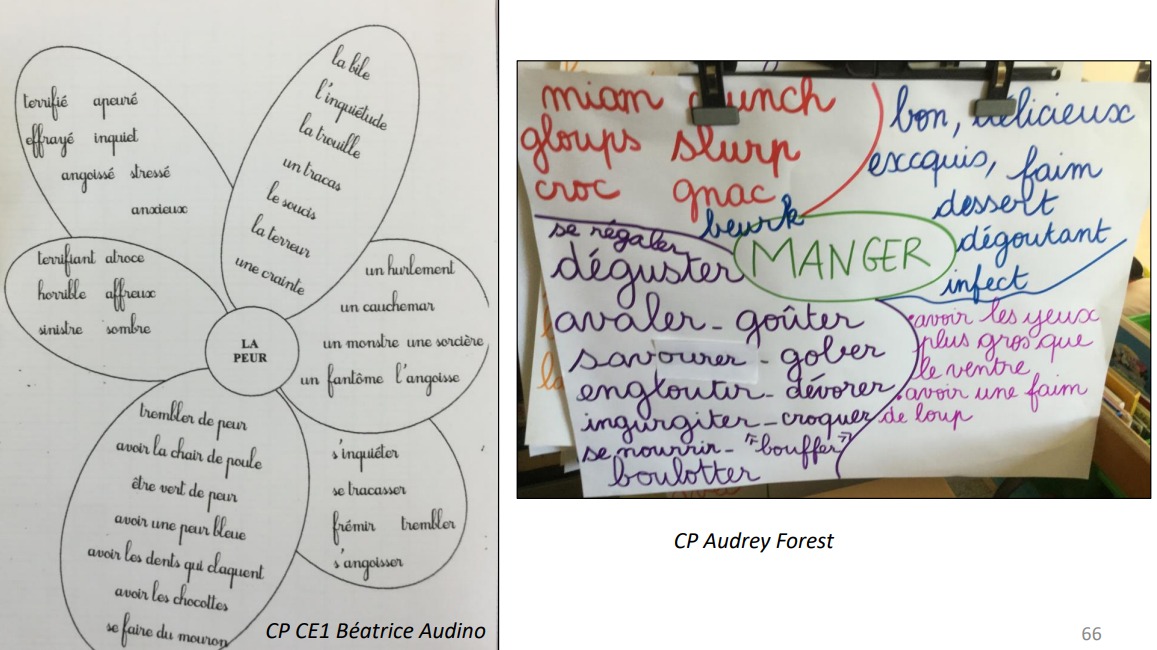 terrifié apeuré
effrayé inquiet
angoissé stressé
anxieux
la bile
l'inquiétude
la trouille
un tracas
le soucis
la terreur
une crainte
terrifiant atroce
horrible affreux
sinistre sombre
LA
PEUR
un hurlement
un cauchemar
un monstre une sorcière
un fantôme l'angoisse
trembler de peur
avoir la chair de poule
être vert de peur
avoir une peur bleue
avoir les dents qui claquent
avoir les chocottes
se faire du mouron
s'inquiéter
se tracasser
frémir trembler
s'angoisser
CP CE1 Béatrice Audino
miam
gloups slurp
croc gnac
beurk
bon, délicieux
exxquis, faim
dessert
dégoutant
infect
MANGER
se régaler
déguster
avaler - goûter
savourer - gober
engloutir - dévorer
ingurgiter - croquer
se nourrir - "bouffer"
boulotter
avoir les yeux
plus gros que
le ventre
avoir une faim
de loup
CP Audrey Forest
66